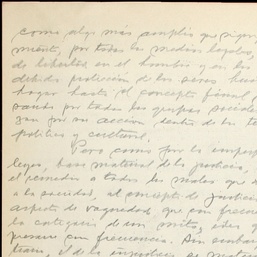 como algo más amplio que rigor
mente, por todos los medios legales,
de libertad en el hombre y en los
debida protección de los seres hum
hogar hasta el concepto final
por todos los grupos sociales
en su acción dentro de los
político y cultural.
Pero como por lo
leyes, base material de la justicia,
el remedio a todos los males que
a la sociedad, el concepto de justicia
aspecto de vaguedad que con frecuen
la categoría de un mito, e
con frecuencia. Sin embar
el de la injusticia es